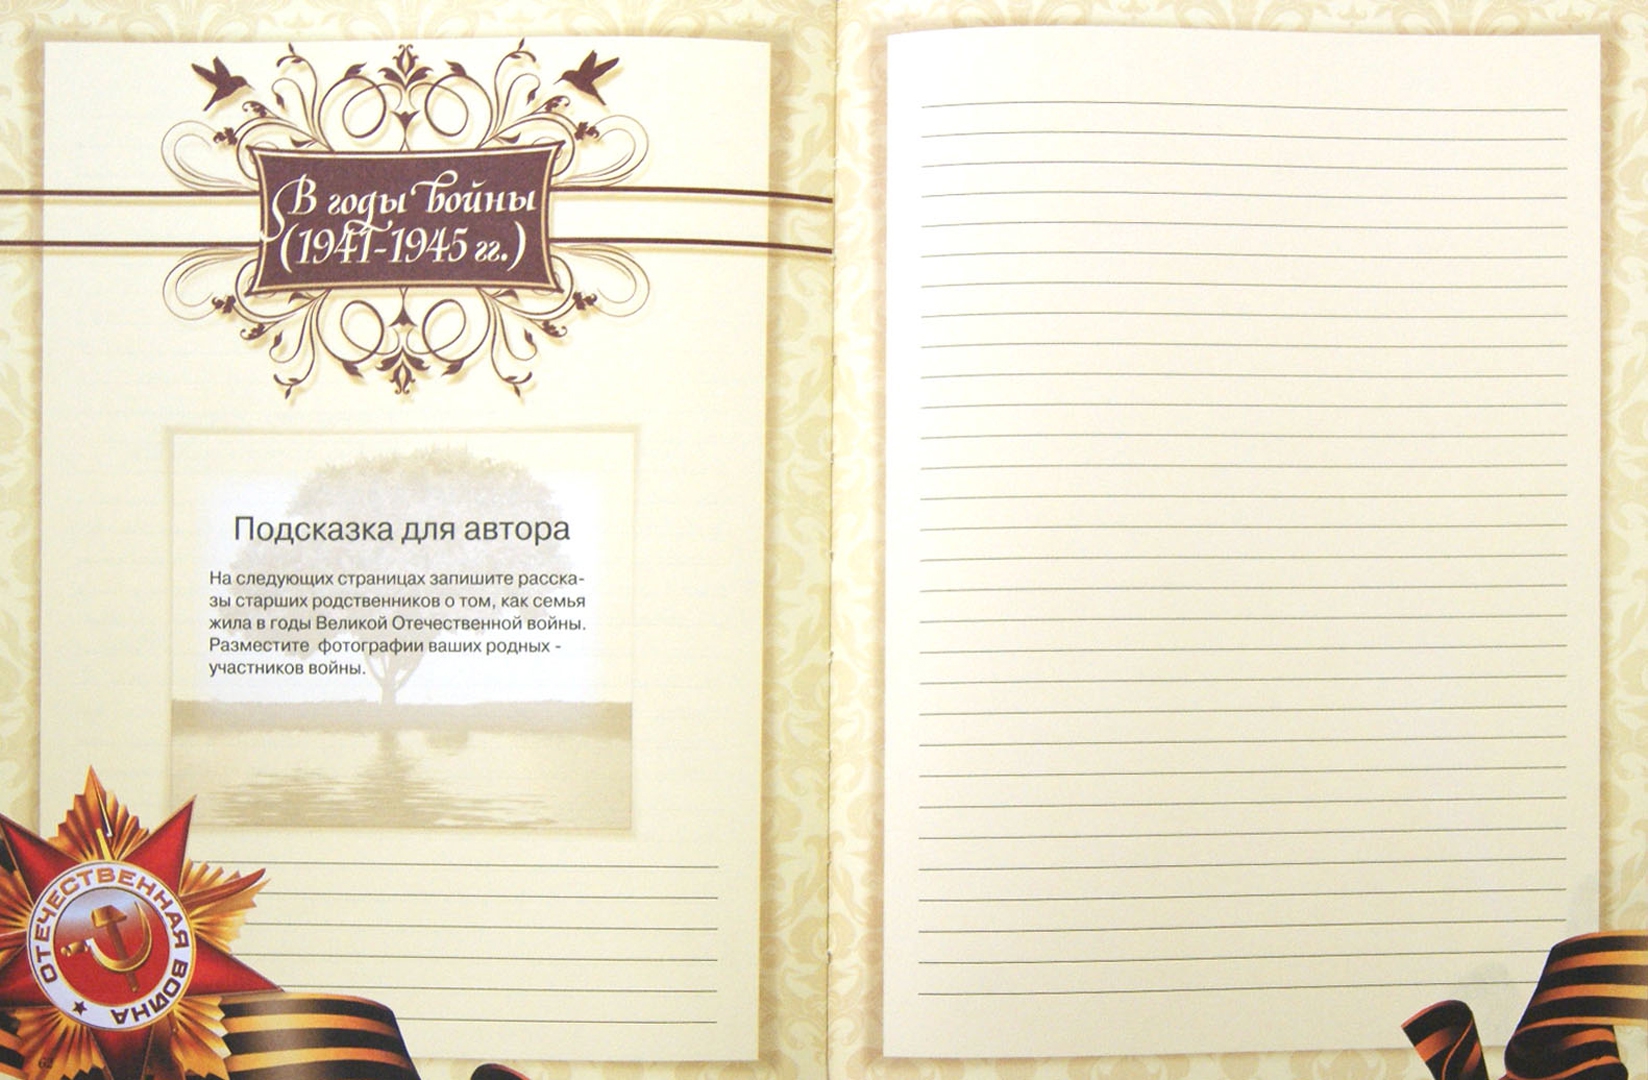 В годы войны
(1941-1945 гг.)
Подсказка для автора
На следующих страницах запишите расска-
зы старших родственников о том, как семья
жила в годы Великой Отечественной войны.
Разместите фотографии ваших родных -
участников войны.
ОТЕЧЕСТВЕННАЯ ВОЙНА